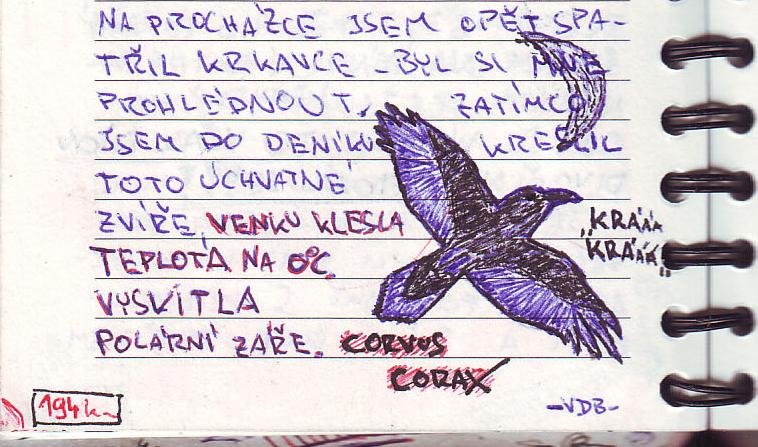 NA PROCHÁZCE JSEM OPĚT SPA-
TŘIL KRKAVCE - BYL SI MNE
PROHLÉDNOUT. ZATÍMCO
JSEM DO DENÍKU KRESLIL
TOTO ÚCHVATNÉ
ZVÍŘE, VENKU KLESLA
TEPLOTA NA 0°C.
VYSVITLA
POLÁRNÍ ZÁŘE.
CORVUS
CORAX
„KRÁÁÁ
KRÁÁÁ“
194 km
-VDB-